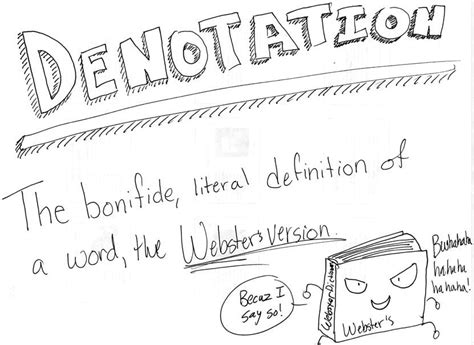 DENOTATION
The bonifide, literal definition of
a word, the Webster's version.
Becuz I
say so!
Webster Dictionary
Webster's
Bwahahaha
ha,haha
ha haha!